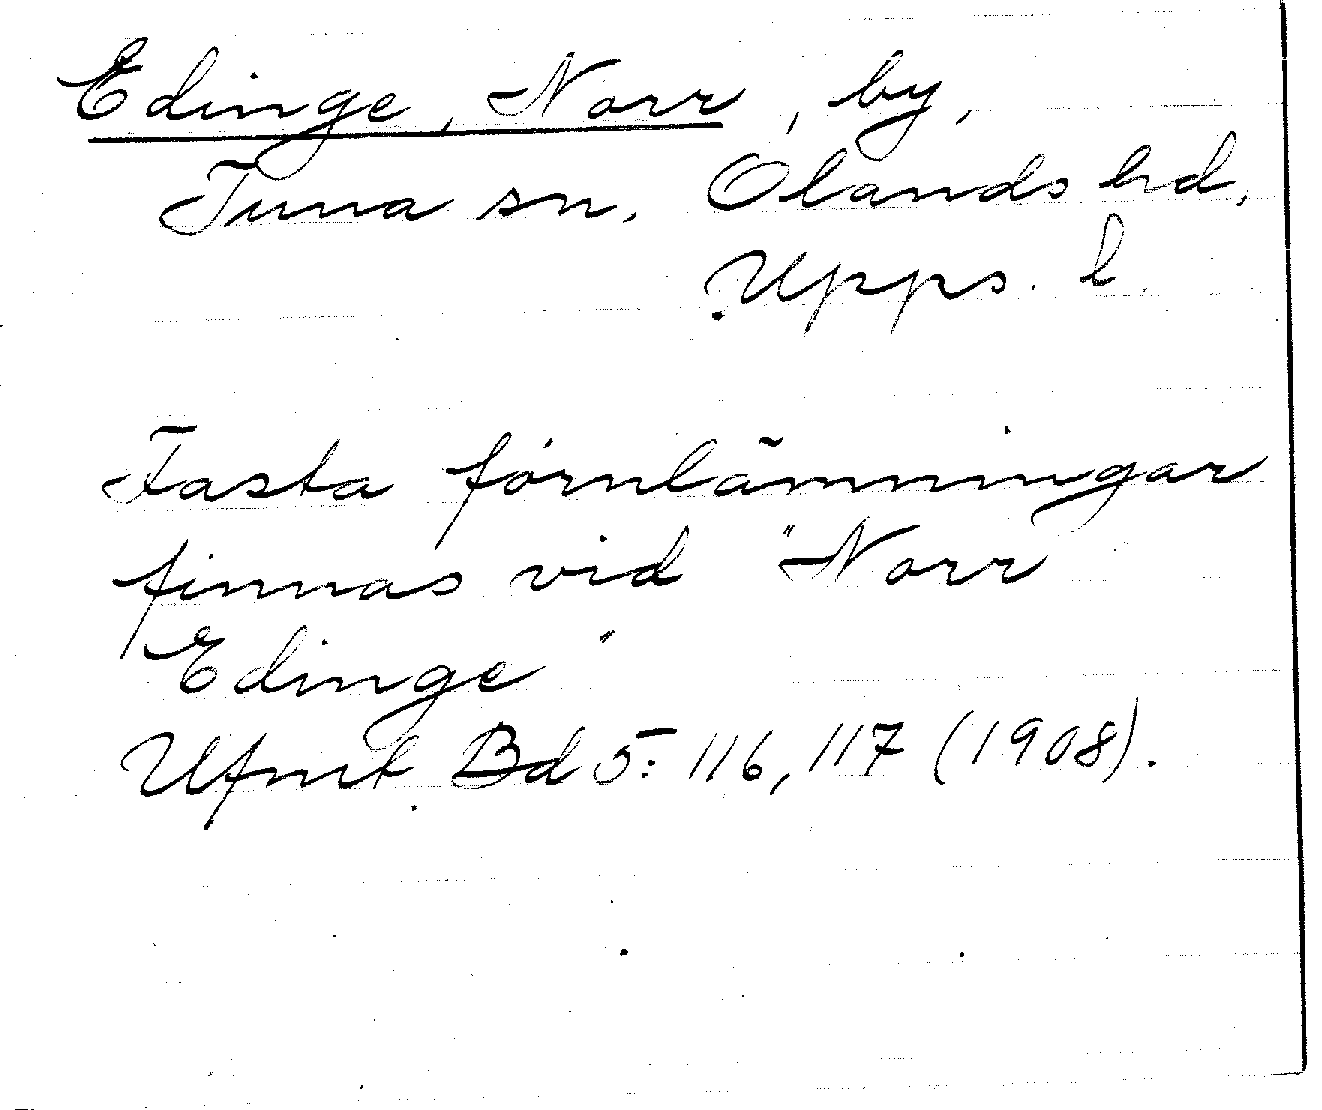 Edinge, Norr, by,
Tuna sn, Olands hd,
Upps. l.
Fasta fornlämningar
finnas vid "Norr
Edinge"
Ufmt Bd 5: 116, 117 (1908).